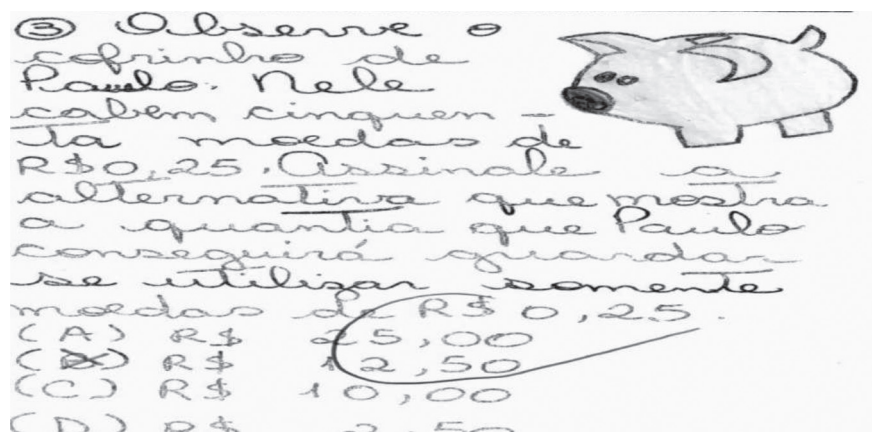 ③ Observe o
cofrinho de
Paulo. Nele
cabem cinquen-
ta moedas de
R$0,25. Assinale a
alternativa que mostra
a quantia que Paulo
conseguirá guardar
se utilizar somente
moedas de R$ 0,25.
(A) R$ 25,00
(B) R$ 12,50
(C) R$ 10,00
(D) R$ 2,50